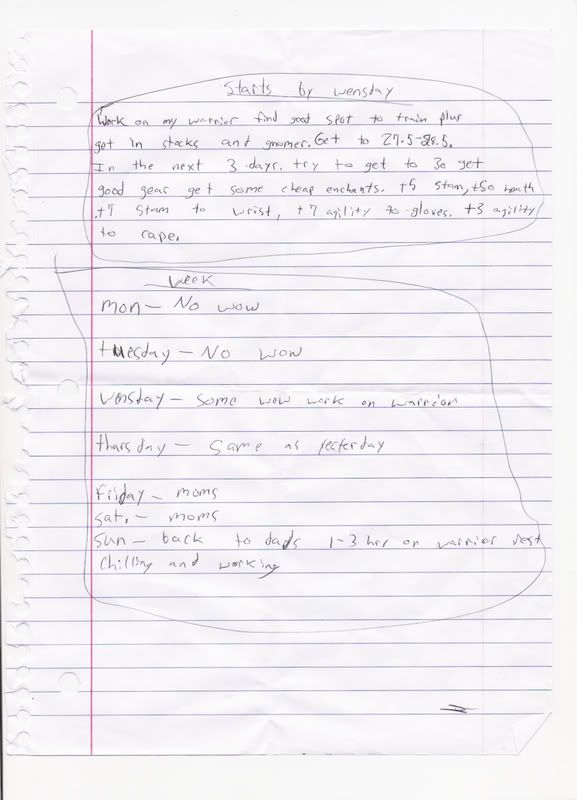 Starts by wensday
Work on my warrior find good spot to train plus
get in stocks and gnomer. Get to 27.5-28.5.
In the next 3 days. try to get to 30 get
good gear get some cheap enchants. +5 stam, +50 health
+7 stam to wrist, +7 agility to gloves. +3 agility
to cape.
Week
mon- No wow
tuesday - No wow
wensday - some wow work on warrior
thursday - same as yesterday
Friday - moms
sat. - moms
sun - back to dads 1-3 hrs on warrior rest
chilling and working